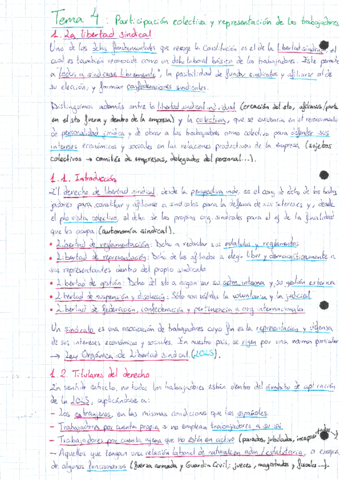 Tema 4: Participación colectiva y representación de los trabajadores
1. La libertad sindical
Uno de los dchos fundamentales que recoge la Constitución es el de la libertad sindical, el
cual es también reconocido como un dcho laboral básico de los trabajadores. Este permite
a "todos a sindicarse libremente", la posibilidad de fundar sindicatos y afiliarse al de
su elección, y formar confederaciones sindicales.
Distinguimos además entre la libertad sindical individual (creación del sto, afiliarse/parte
en el sto fuera y dentro de la empresa) y la colectiva, que se evidencia en el reconocimiento
de personalidad jurídica y de obrar a los trabajadores como colectivo para defender sus
intereses económicos y sociales en las relaciones productivas de la empresa (sujetos
colectivos → comités de empresas, delegados del personal...).
1.1. Introducción
El derecho de libertad sindical, desde la perspectiva indv, es el conj de dchos de los traba
jadores para constituir y afiliarse a sindicatos para la defensa de sus intereses y, desde
el pto vista colectivo, al dcho de las propias org. sindicales para el ej de la finalidad
que les ocupa. (autonomía sindical).
• Libertad de reglamentación: Dcho a redactar sus estatutos y reglamentos
• Libertad de representación: Dcho de los afiliados a elegir libre y democráticamente a
sus representantes dentro del propio sindicato
• Libertad de gestión: Dcho del sto a organizar su adm. interna y su gestión externa
• Libertad de suspensión y disolución: Solo son válidas la voluntaria y la judicial
• Libertad de federación, confederación y pertenencia a org. internacionales.
Un sindicato es una asociación de trabajadores cuyo fin es la representación y defensa
de sus intereses económicos y sociales. En nuestro país, se rigen por una norma particular
→ Ley Orgánica de Libertad Sindical (LOLS).
1.2. Titulares del derecho
En sentido estricto, no todos los trabajadores están dentro del ámbito de aplicación
de la LOLS, aplicándose a:
- Los extranjeros, en las mismas condiciones que los españoles.
- Trabajadores por cuenta propia, si no emplean trabajadores a su vez
- Trabajadores por cuenta ajena que no estén en activo (parados, jubilados, incapac
- Aquellos que tengan una relación laboral de naturaleza adm/estatutaria, a excepc
de algunos funcionarios (fuerza armada y Guardia Civil; jueces, magistrados y fiscales...).